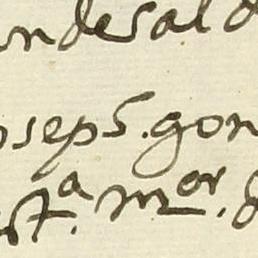 ondesal d
oseps. gon
st.ª m.or